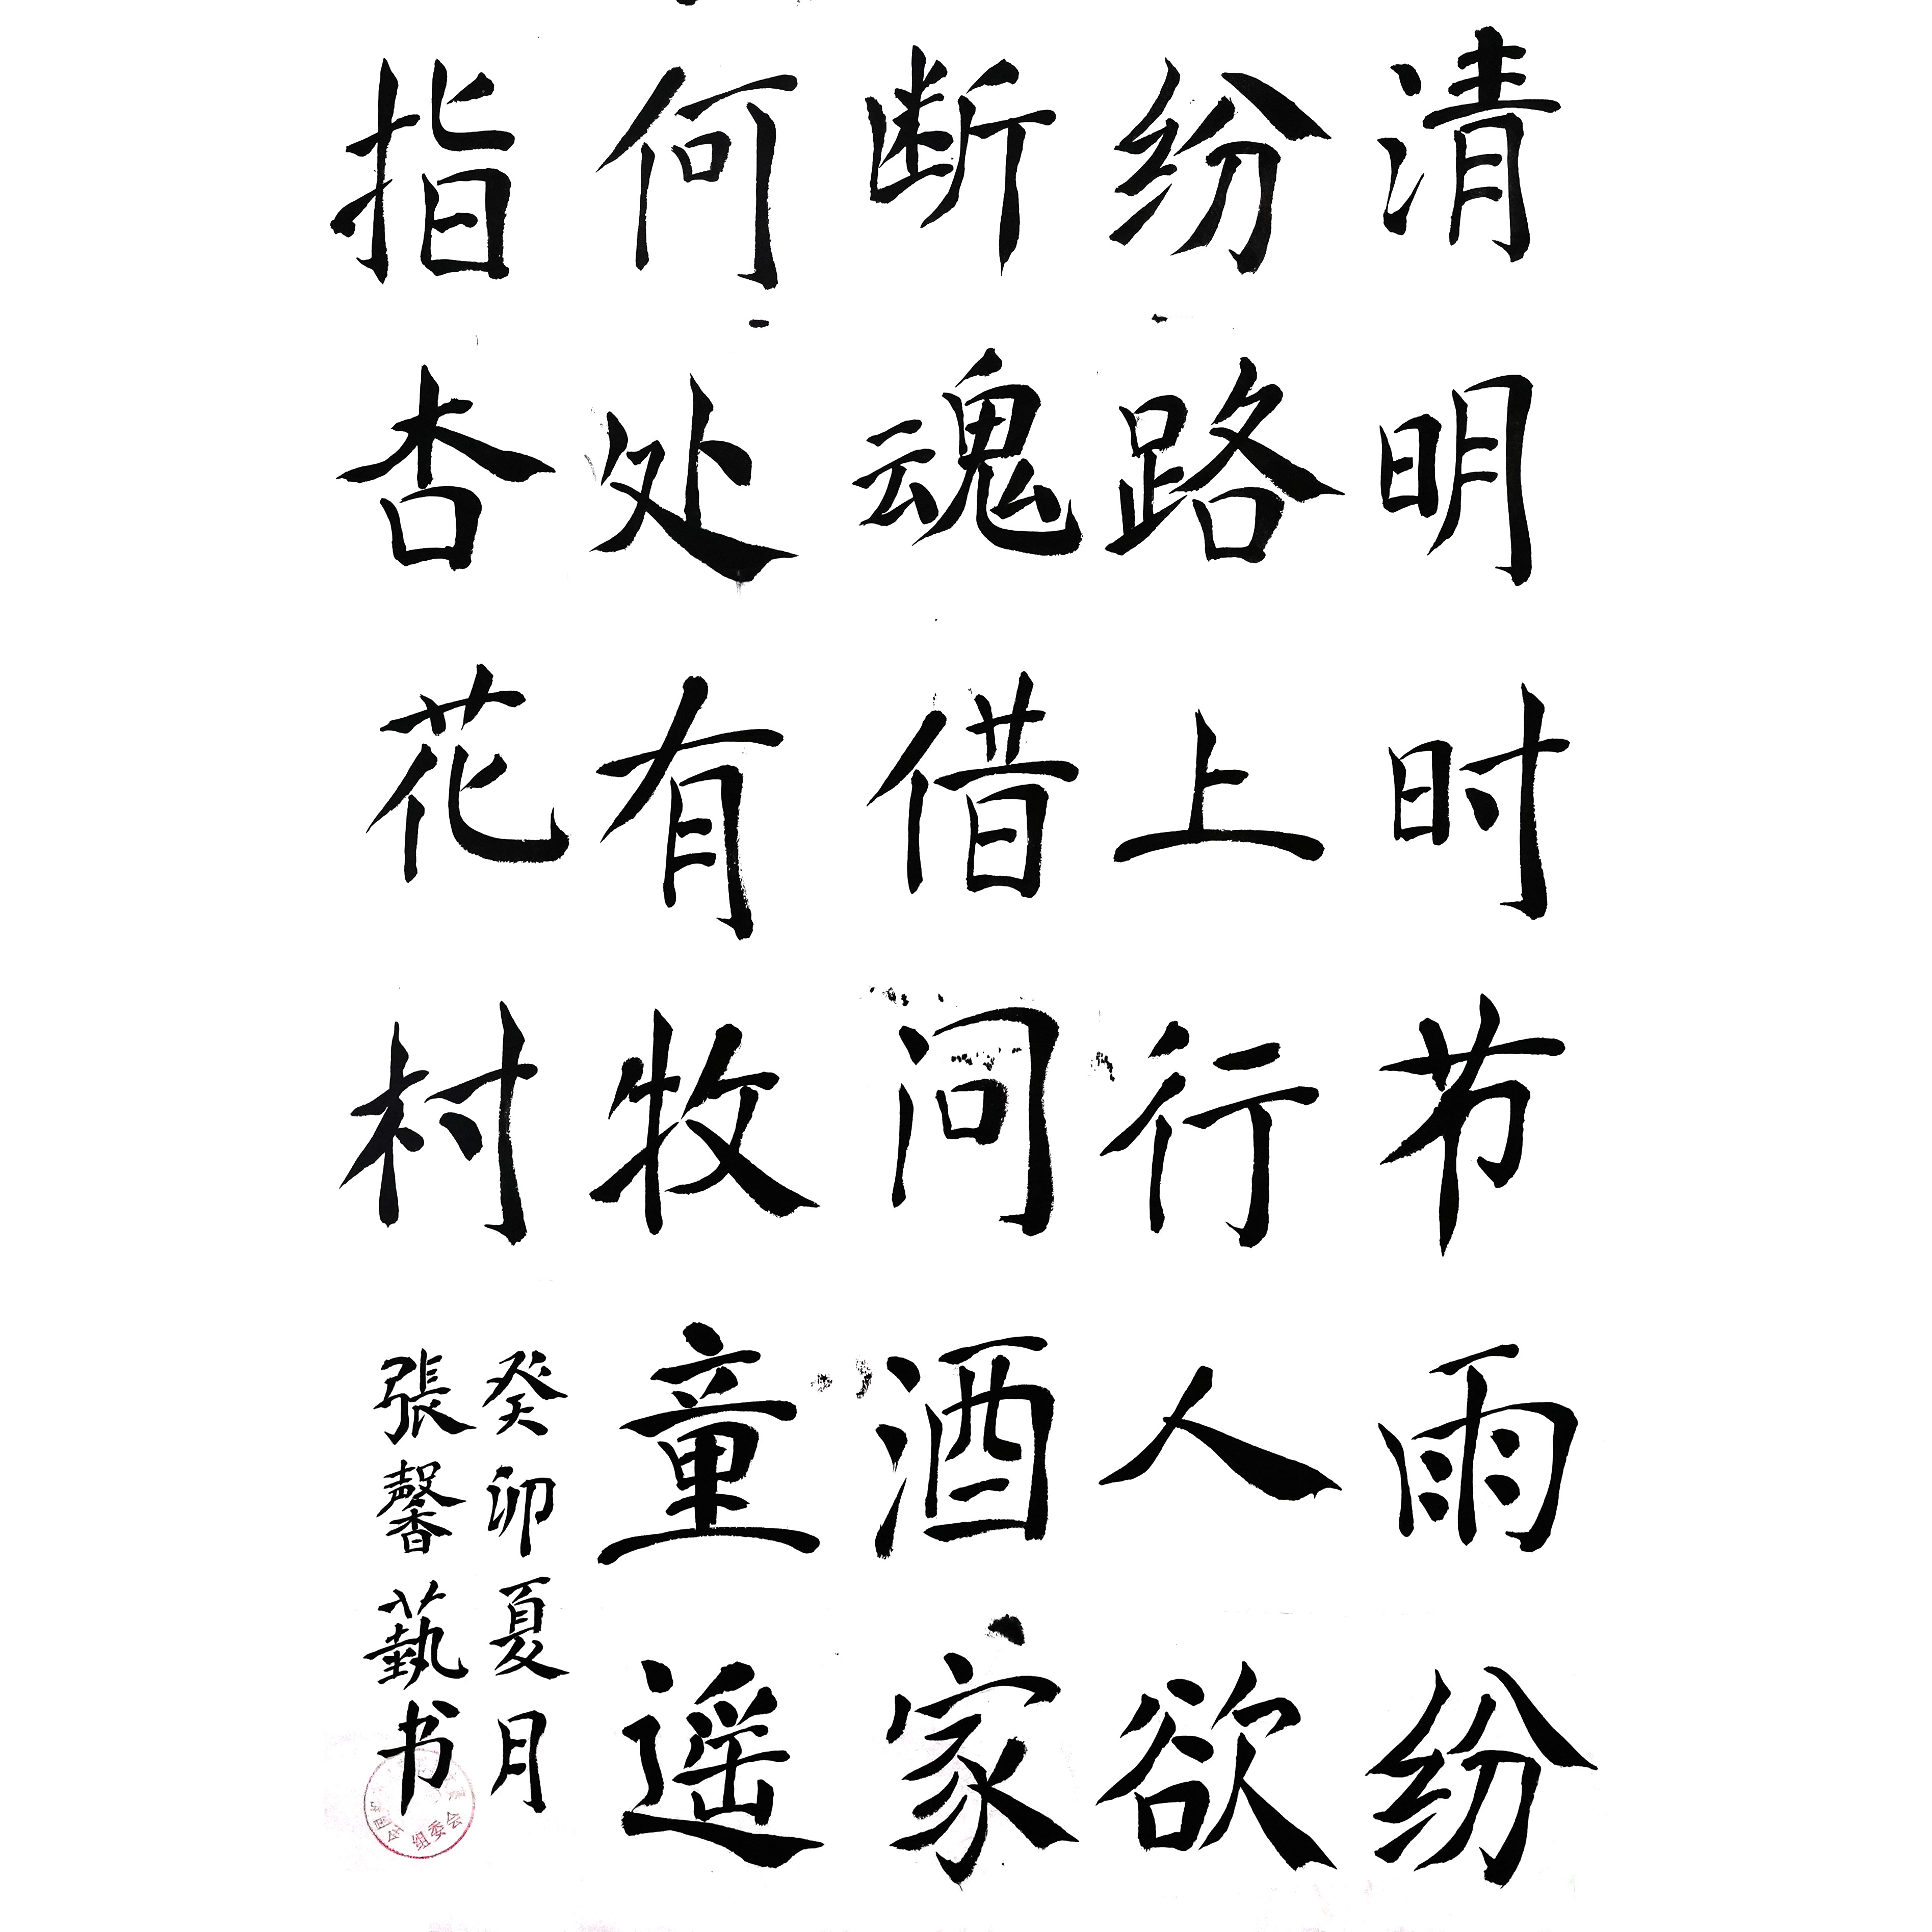 清明时节雨纷
纷路上行人欲
断魂借问酒家
何处有牧童遥
指杏花村
癸卯夏月
張馨藝书
组委会